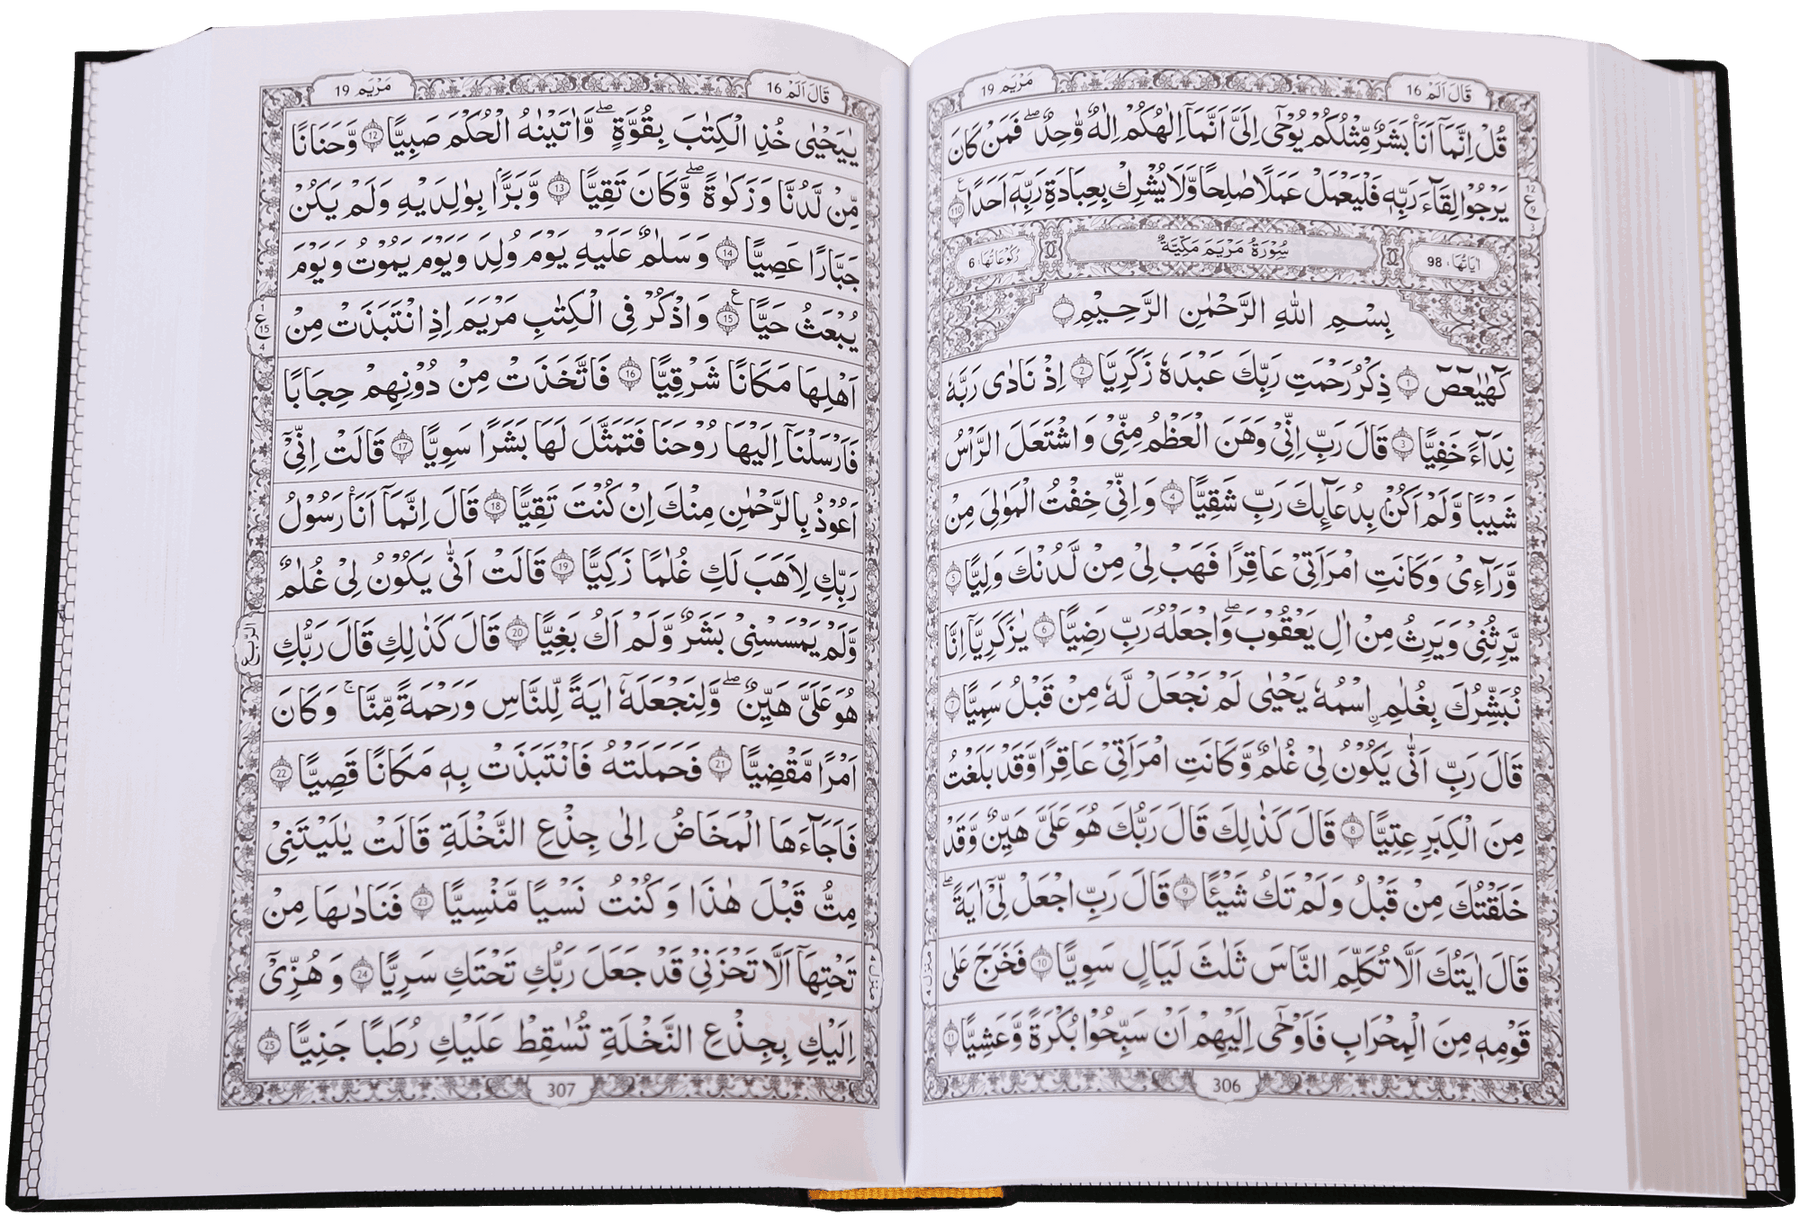 قَالَ اَلَمْ 16
مَرْيَم 19
قُلْ اِنَّمَاۤ اَنَا۠ بَشَرٌ مِّثْلُكُمْ يُوْحٰۤى اِلَىَّ اَنَّمَاۤ اِلٰهُكُمْ اِلٰهٌ وَّاحِدٌ ۖ فَمَنْ كَانَ
يَرْجُوْا لِقَآءَ رَبِّهٖ فَلْيَعْمَلْ عَمَلًا صَالِحًا وَّلَا يُشْرِكْ بِعِبَادَةِ رَبِّهٖۤ اَحَدًا ۧ 110
12 ع 9 3
اٰيَاتُهَا، 98
سُوْرَةُ مَرْيَمَ مَكِّيَّةٌ
رُكُوْعَاتُهَا، 6
بِسْمِ اللهِ الرَّحْمٰنِ الرَّحِيْمِ
كٓهٰيٰعٓصٓ 1 ذِكْرُ رَحْمَتِ رَبِّكَ عَبْدَهٗ زَكَرِيَّا 2 اِذْ نَادٰى رَبَّهٗ
نِدَآءً خَفِيًّا 3 قَالَ رَبِّ اِنِّىْ وَهَنَ الْعَظْمُ مِنِّىْ وَاشْتَعَلَ الرَّاْسُ
شَيْبًا وَّلَمْ اَكُنْۢ بِدُعَآئِكَ رَبِّ شَقِيًّا 4 وَاِنِّىْ خِفْتُ الْمَوٰلِىَ مِنْ
وَّرَآءِىْ وَكَانَتِ امْرَاَتِىْ عَاقِرًا فَهَبْ لِىْ مِنْ لَّدُنْكَ وَلِيًّا 5
يَّرِثُنِىْ وَيَرِثُ مِنْ اٰلِ يَعْقُوْبَ ۖ وَاجْعَلْهُ رَبِّ رَضِيًّا 6 يٰزَكَرِيَّاۤ اِنَّا
نُبَشِّرُكَ بِغُلٰمِ ۨاسْمُهٗ يَحْيٰى لَمْ نَجْعَلْ لَّهٗ مِنْ قَبْلُ سَمِيًّا 7
قَالَ رَبِّ اَنّٰى يَكُوْنُ لِىْ غُلٰمٌ وَّكَانَتِ امْرَاَتِىْ عَاقِرًا وَّقَدْ بَلَغْتُ
مِنَ الْكِبَرِ عِتِيًّا 8 قَالَ كَذٰلِكَ قَالَ رَبُّكَ هُوَ عَلَىَّ هَيِّنٌ وَّقَدْ
خَلَقْتُكَ مِنْ قَبْلُ وَلَمْ تَكُ شَيْئًا 9 قَالَ رَبِّ اجْعَلْ لِّىْۤ اٰيَةً ۖ
قَالَ اٰيَتُكَ اَلَّا تُكَلِّمَ النَّاسَ ثَلٰثَ لَيَالٍ سَوِيًّا 10 فَخَرَجَ عَلٰى
قَوْمِهٖ مِنَ الْمِحْرَابِ فَاَوْحٰۤى اِلَيْهِمْ اَنْ سَبِّحُوْا بُكْرَةً وَّعَشِيًّا 11
منزل ٤
306
قَالَ اَلَمْ 16
مَرْيَم 19
يٰيَحْيٰى خُذِ الْكِتٰبَ بِقُوَّةٍ ۖ وَّاٰتَيْنٰهُ الْحُكْمَ صَبِيًّا 12 وَّحَنَانًا
مِّنْ لَّدُنَّا وَزَكٰوةً ۖ وَّكَانَ تَقِيًّا 13 وَّبَرًّۢا بِوَالِدَيْهِ وَلَمْ يَكُنْ
جَبَّارًا عَصِيًّا 14 وَسَلٰمٌ عَلَيْهِ يَوْمَ وُلِدَ وَيَوْمَ يَمُوْتُ وَيَوْمَ
يُبْعَثُ حَيًّا ۧ 15 وَاذْكُرْ فِى الْكِتٰبِ مَرْيَمَ اِذِ انْتَبَذَتْ مِنْ
1 ع 15 4
اَهْلِهَا مَكَانًا شَرْقِيًّا 16 فَاتَّخَذَتْ مِنْ دُوْنِهِمْ حِجَابًا
فَاَرْسَلْنَاۤ اِلَيْهَا رُوْحَنَا فَتَمَثَّلَ لَهَا بَشَرًا سَوِيًّا 17 قَالَتْ اِنِّىْۤ
اَعُوْذُ بِالرَّحْمٰنِ مِنْكَ اِنْ كُنْتَ تَقِيًّا 18 قَالَ اِنَّمَاۤ اَنَا۠ رَسُوْلُ
رَبِّكِ لِاَهَبَ لَكِ غُلٰمًا زَكِيًّا 19 قَالَتْ اَنّٰى يَكُوْنُ لِىْ غُلٰمٌ
وَّلَمْ يَمْسَسْنِىْ بَشَرٌ وَّلَمْ اَكُ بَغِيًّا 20 قَالَ كَذٰلِكِ قَالَ رَبُّكِ
الربع
هُوَ عَلَىَّ هَيِّنٌ ۖ وَّلِنَجْعَلَهٗۤ اٰيَةً لِّلنَّاسِ وَرَحْمَةً مِّنَّا ۚ وَكَانَ
اَمْرًا مَّقْضِيًّا 21 فَحَمَلَتْهُ فَانْتَبَذَتْ بِهٖ مَكَانًا قَصِيًّا 22
فَاَجَآءَهَا الْمَخَاضُ اِلٰى جِذْعِ النَّخْلَةِ قَالَتْ يٰلَيْتَنِىْ
مِتُّ قَبْلَ هٰذَا وَكُنْتُ نَسْيًا مَّنْسِيًّا 23 فَنَادٰىهَا مِنْ
تَحْتِهَاۤ اَلَّا تَحْزَنِىْ قَدْ جَعَلَ رَبُّكِ تَحْتَكِ سَرِيًّا 24 وَهُزِّىْۤ
اِلَيْكِ بِجِذْعِ النَّخْلَةِ تُسٰقِطْ عَلَيْكِ رُطَبًا جَنِيًّا 25
منزل ٤
307